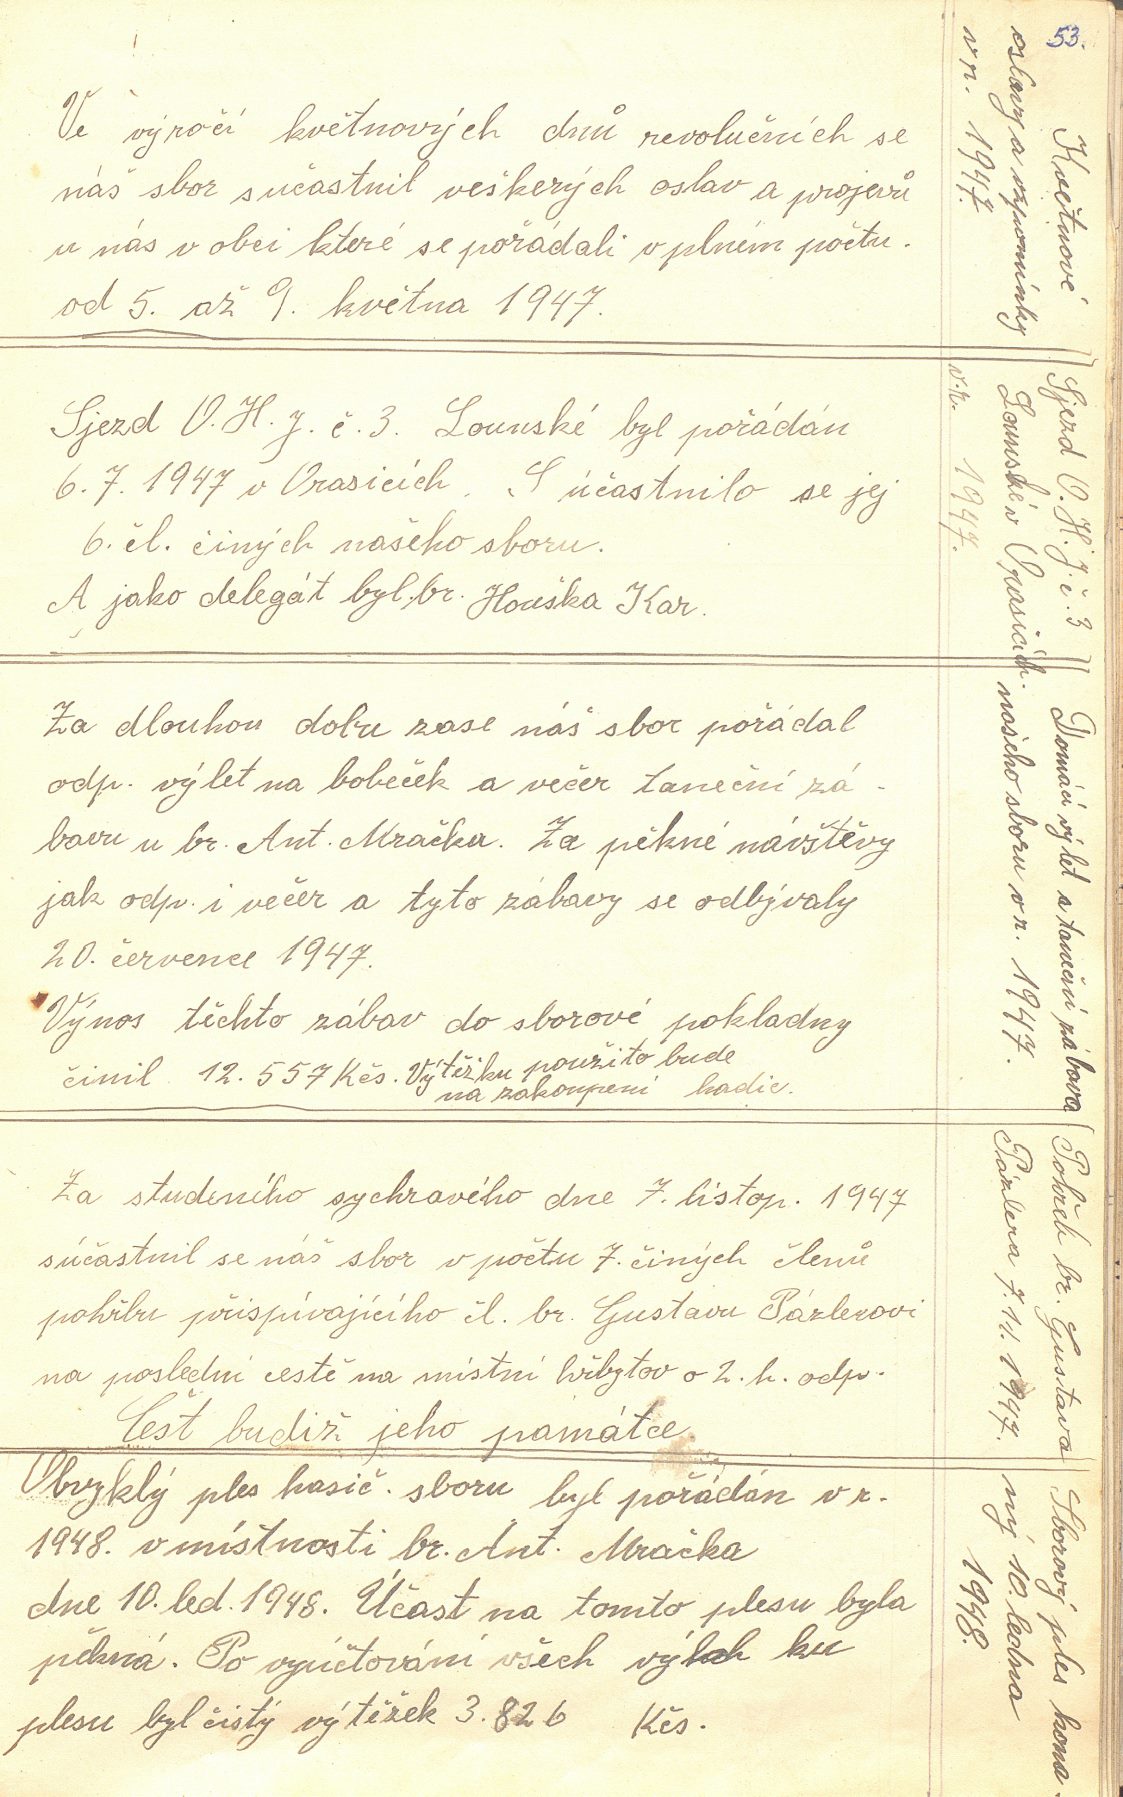 53.
Ve výročí květnových dnů revolučních se
náš sbor sučastnil veškerých oslav a projevů
u nás v obci které se pořádali v plném počtu.
od 5. až 9. května 1947.
Květnové
oslavy a vzpomínky
v r. 1947.
Sjezd O. H. J. č. 3. Lounské byl pořádán
6. 7. 1947 v Orasicích. S účastnilo se jej
6. čl. činých našeho sboru.
A jako delegát byl br. Houška Kar.
Sjezd O. H. J. č. 3
Lounské v Orasicích.
v r. 1947.
Za dlouhou dobu zase náš sbor pořádal
odp. výlet na bobeček a večer taneční zá-
bavu u br. Ant. Mračka. Za pěkné návštěvy
jak odp. i večer a tyto zábavy se odbývaly
20. července 1947.
Výnos těchto zábav do sborové pokladny
činil 12.557 Kčs. Výtěžku použito bude
na zakoupení hadic.
Domácí výlet a taneční zábava
našeho sboru v r. 1947.
Za studeného sychravého dne 7. listop. 1947
súčastnil se náš sbor v počtu 7. činých členů
pohřbu přispívajícího čl. br. Gustavu Pázlerovi
na poslední cestě na místní hřbytov o 2. h. odp.
Čest budiž jeho památce.
Pohřeb br. Gustava
Pázlera 7. 11. 1947.
Obvyklý ples hasič. sboru byl pořádán v r.
1948. v místnosti br. Ant. Mračka
dne 10. led. 1948. Účast na tomto plesu byla
pěkná. Po vyúčtování všech ku
plesu byl čistý výtěžek 3.826 Kčs.
Sborový ples kona-
ný 10. ledna
1948.